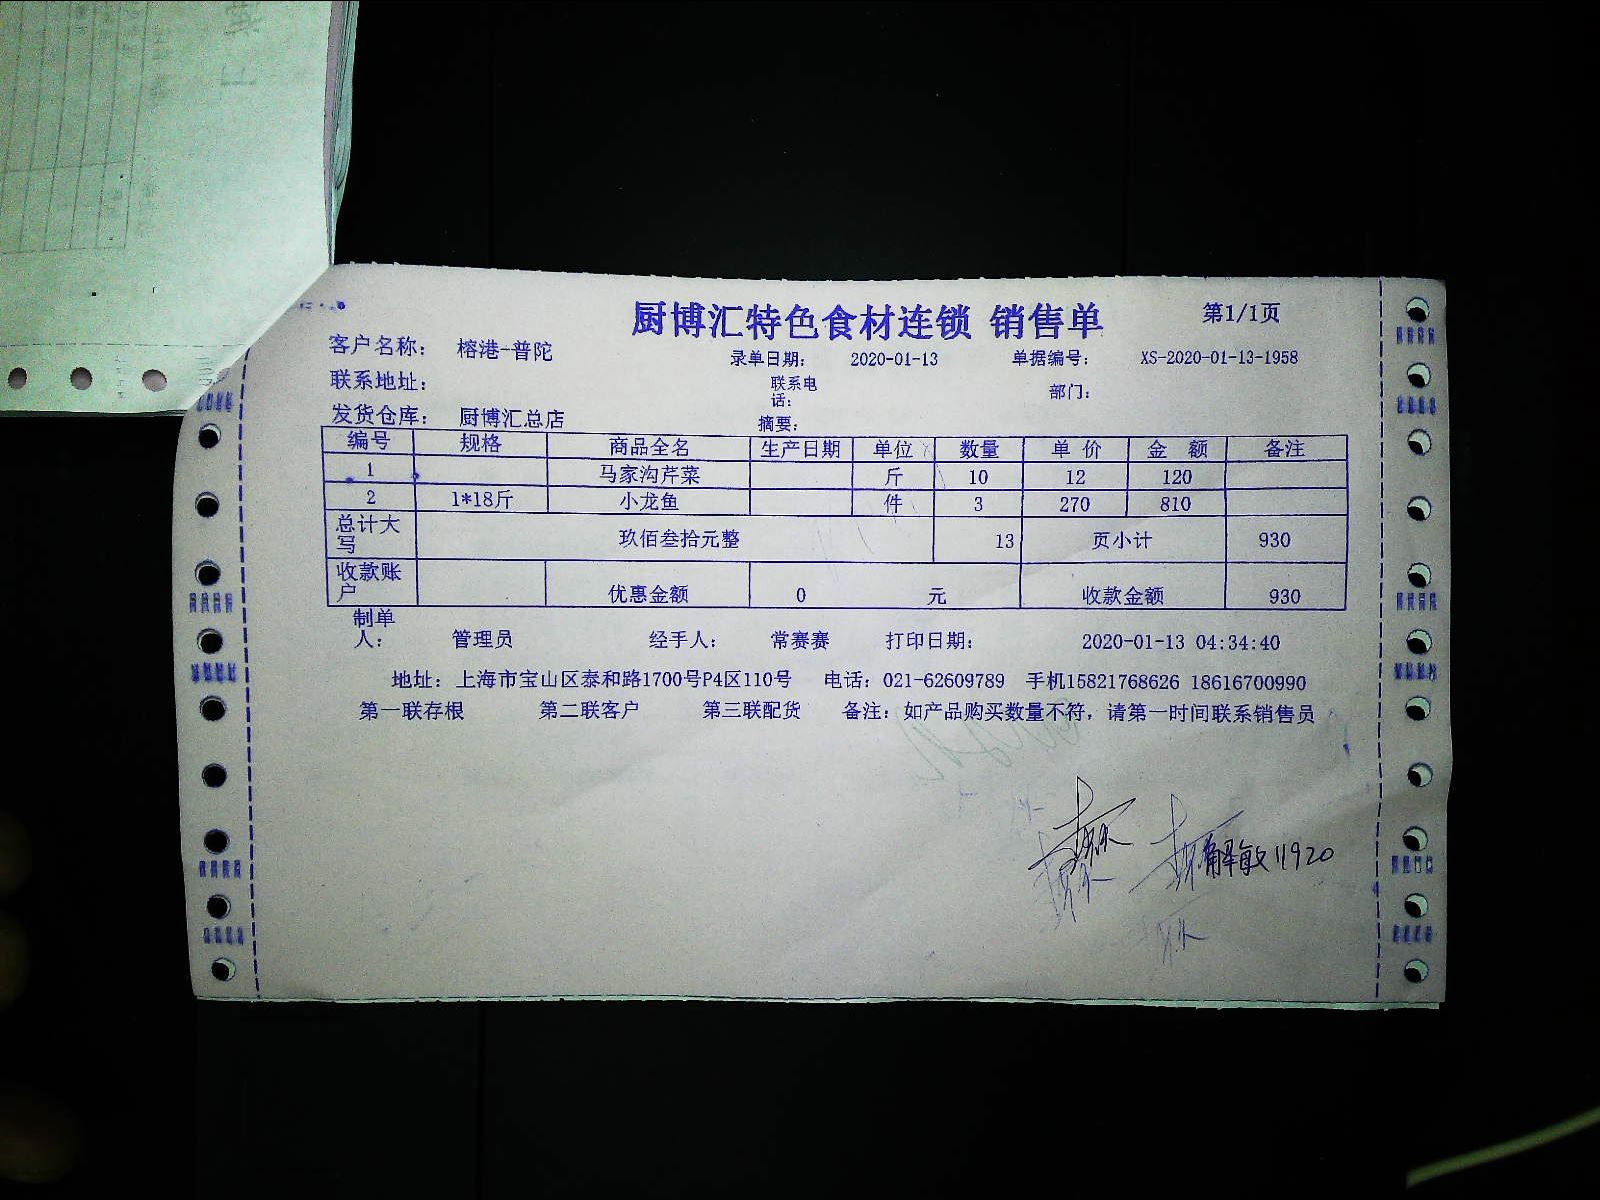 厨博汇特色食材连锁 销售单 第1/1页
客户名称： 榕港-普陀 录单日期： 2020-01-13 单据编号： XS-2020-01-13-1958
联系地址： 联系电话： 部门：
发货仓库： 厨博汇总店 摘要：
编号 规格 商品全名 生产日期 单位 数量 单价 金额 备注
1 马家沟芹菜 斤 10 12 120
2 1*18斤 小龙鱼 件 3 270 810
总计大写 玖佰叁拾元整 13 页小计 930
收款账户 优惠金额 0 元 收款金额 930
制单人： 管理员 经手人： 常赛赛 打印日期： 2020-01-13 04:34:40
地址：上海市宝山区泰和路1700号P4区110号 电话：021-62609789 手机15821768626 18616700990
第一联存根 第二联客户 第三联配货 备注：如产品购买数量不符，请第一时间联系销售员
解敏 11920